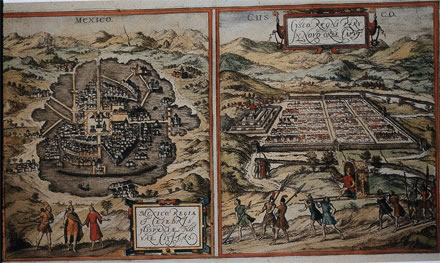 MEXICO.
CVS CO.
CVSCO, REGNI PERV
IN NOVO ORBE CAPVT
MEXICO, REGIA
ET CELEBRIS
HISPANIÆ NO
VAE CIVITAS.